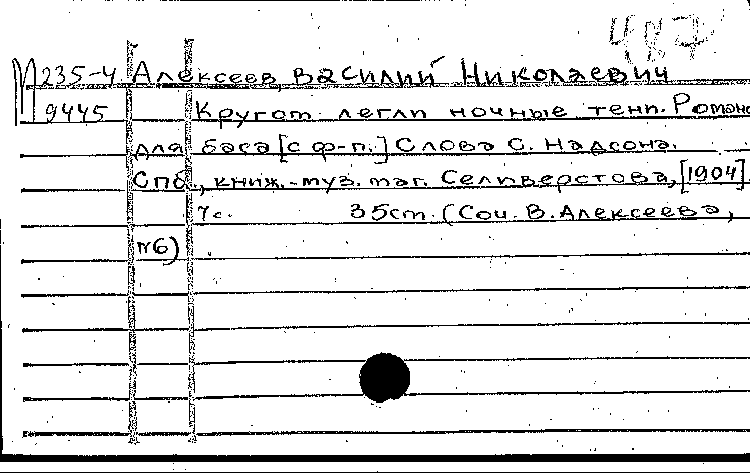 487
М 235-4 Алексеев, Василий Николаевич
9445 Кругом легли ночные тени. Романс
для баса [с ф-п.] Слова С. Надсона.
Спб., книж.-муз. маг. Селиверстова, [1904].
7 с. 35 cm. (Соч. В. Алексеева,
№6)